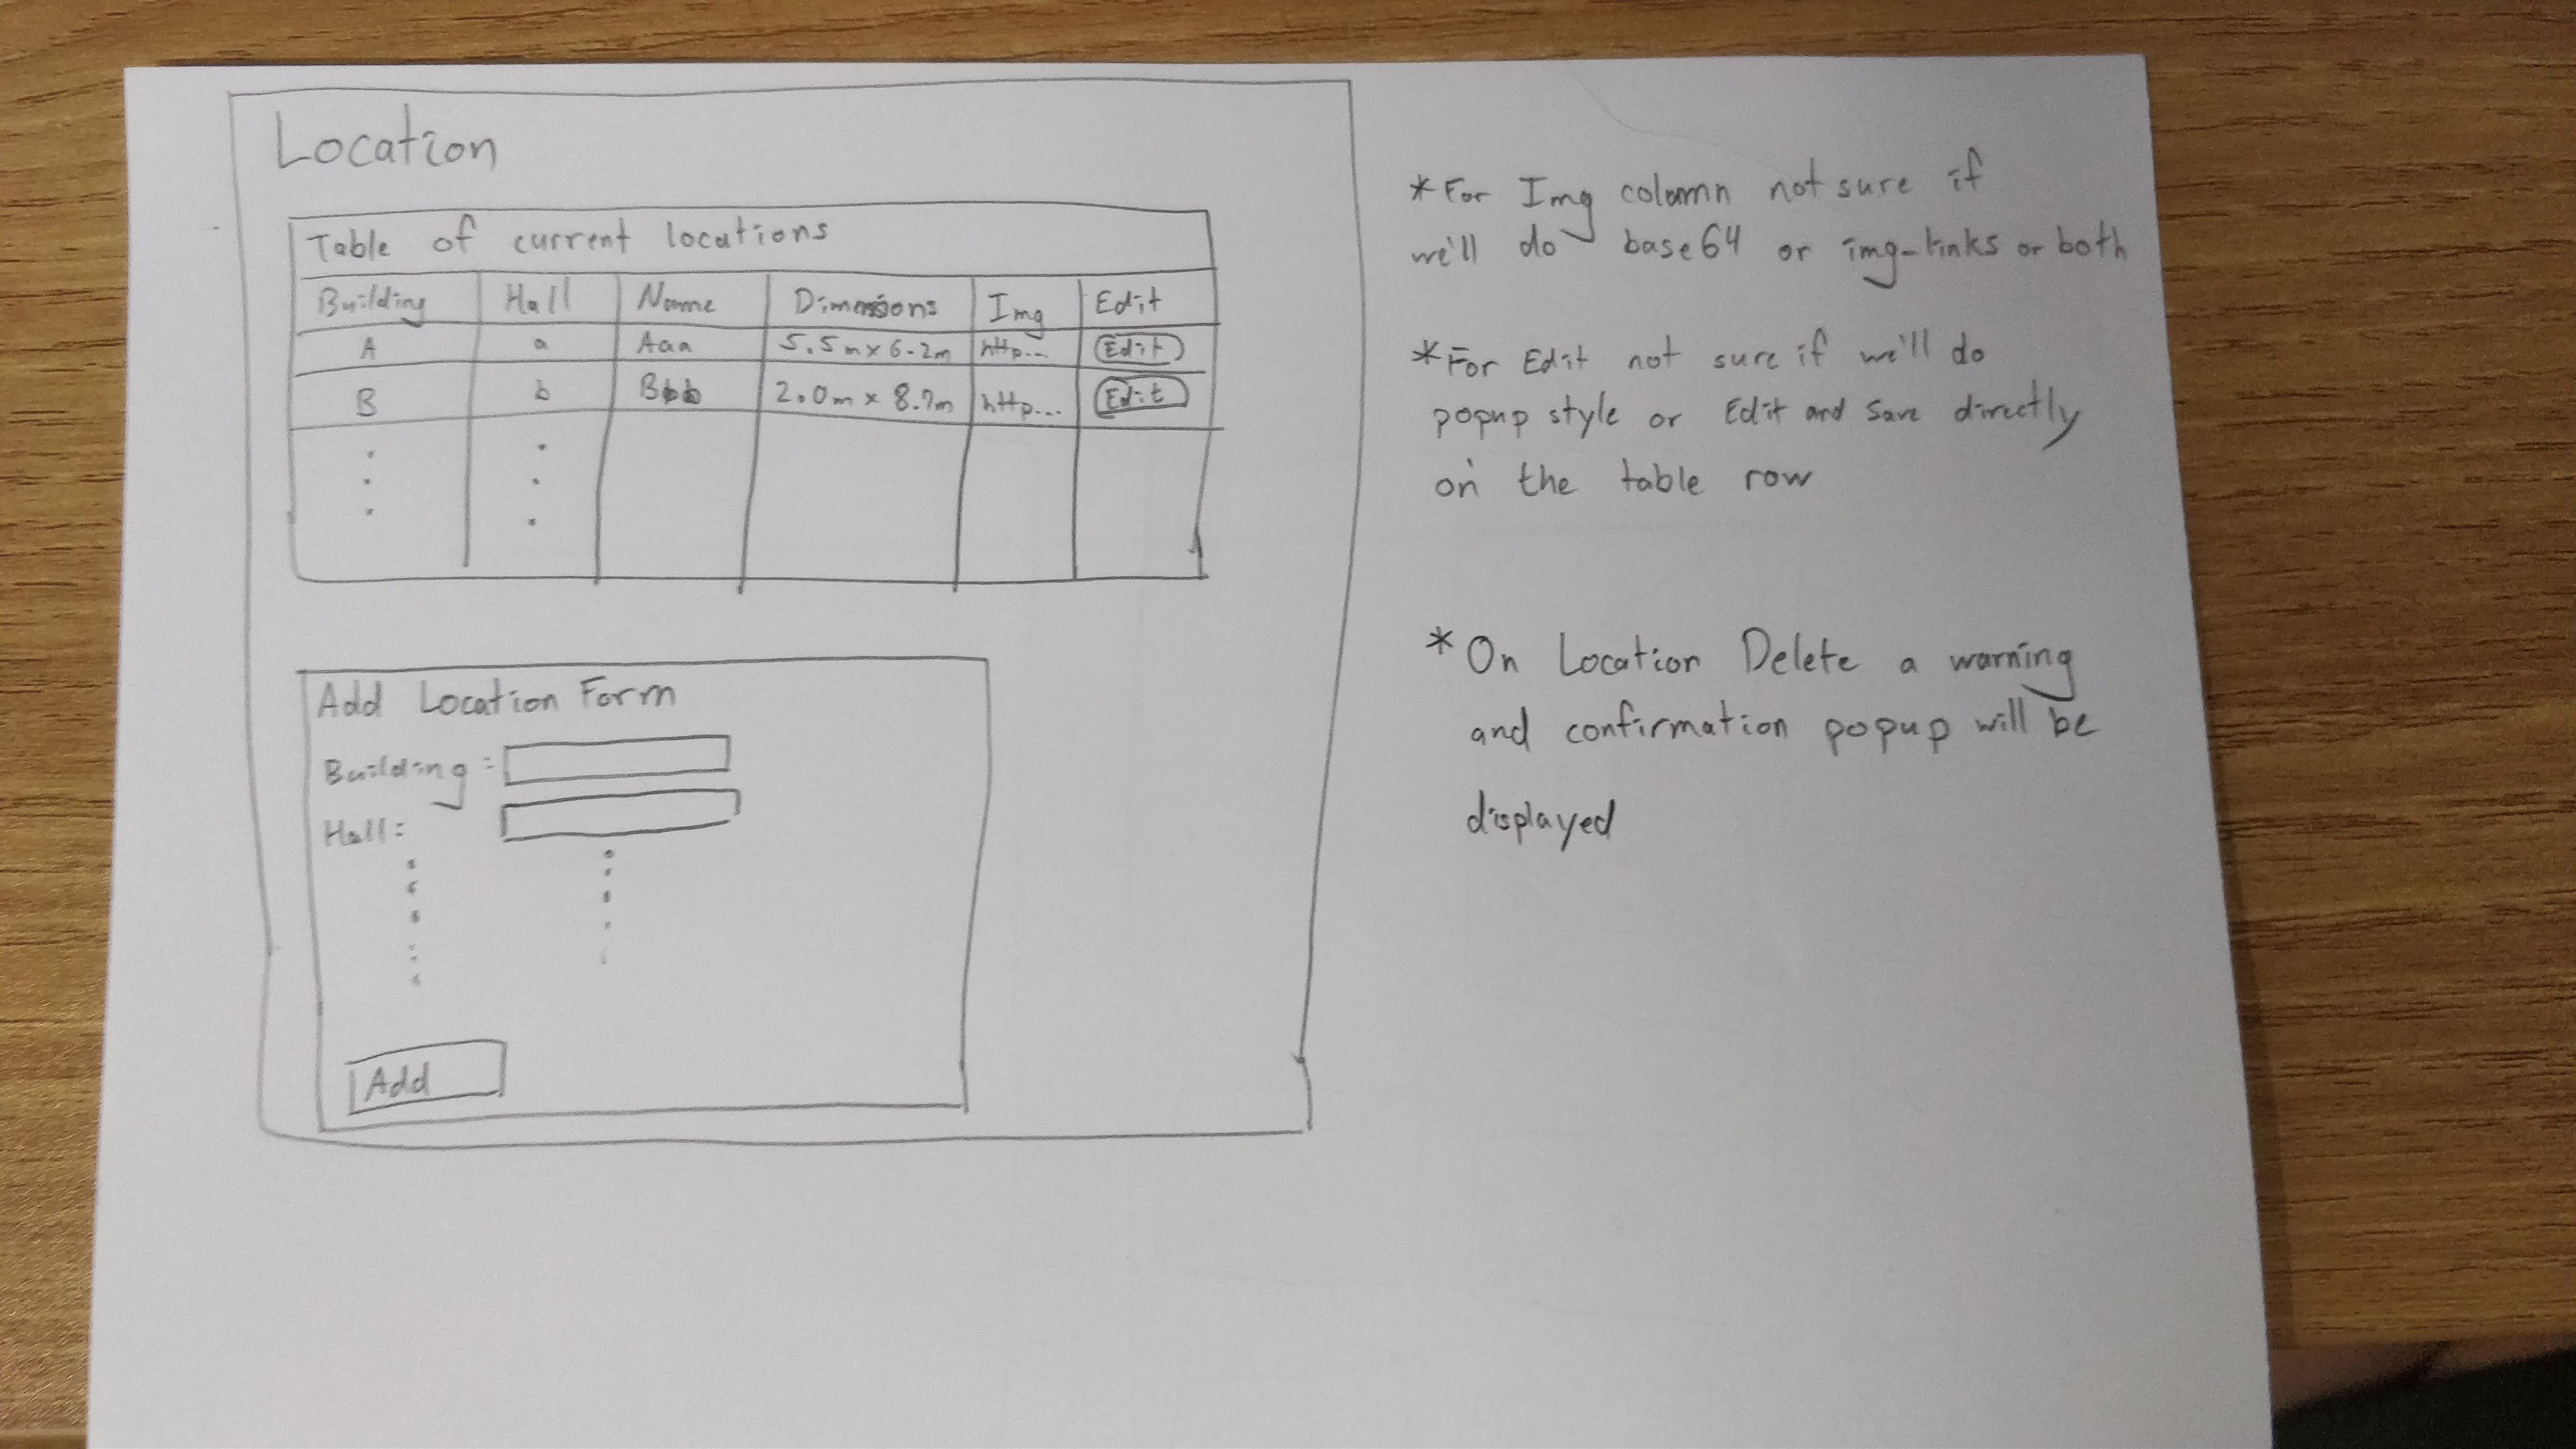 Location
Table of current locations
Building Hall Name Dimensions Img Edit
A a Aaa 5.5m x 6.2m http... Edit
B b Bbb 2.0m x 8.7m http... Edit
Add Location Form
Building:
Hall:
Add
*For Img column not sure if
we'll do base64 or img-links or both
*For Edit not sure if we'll do
popup style or Edit and Save directly
on the table row
*On Location Delete a warning
and confirmation popup will be
displayed